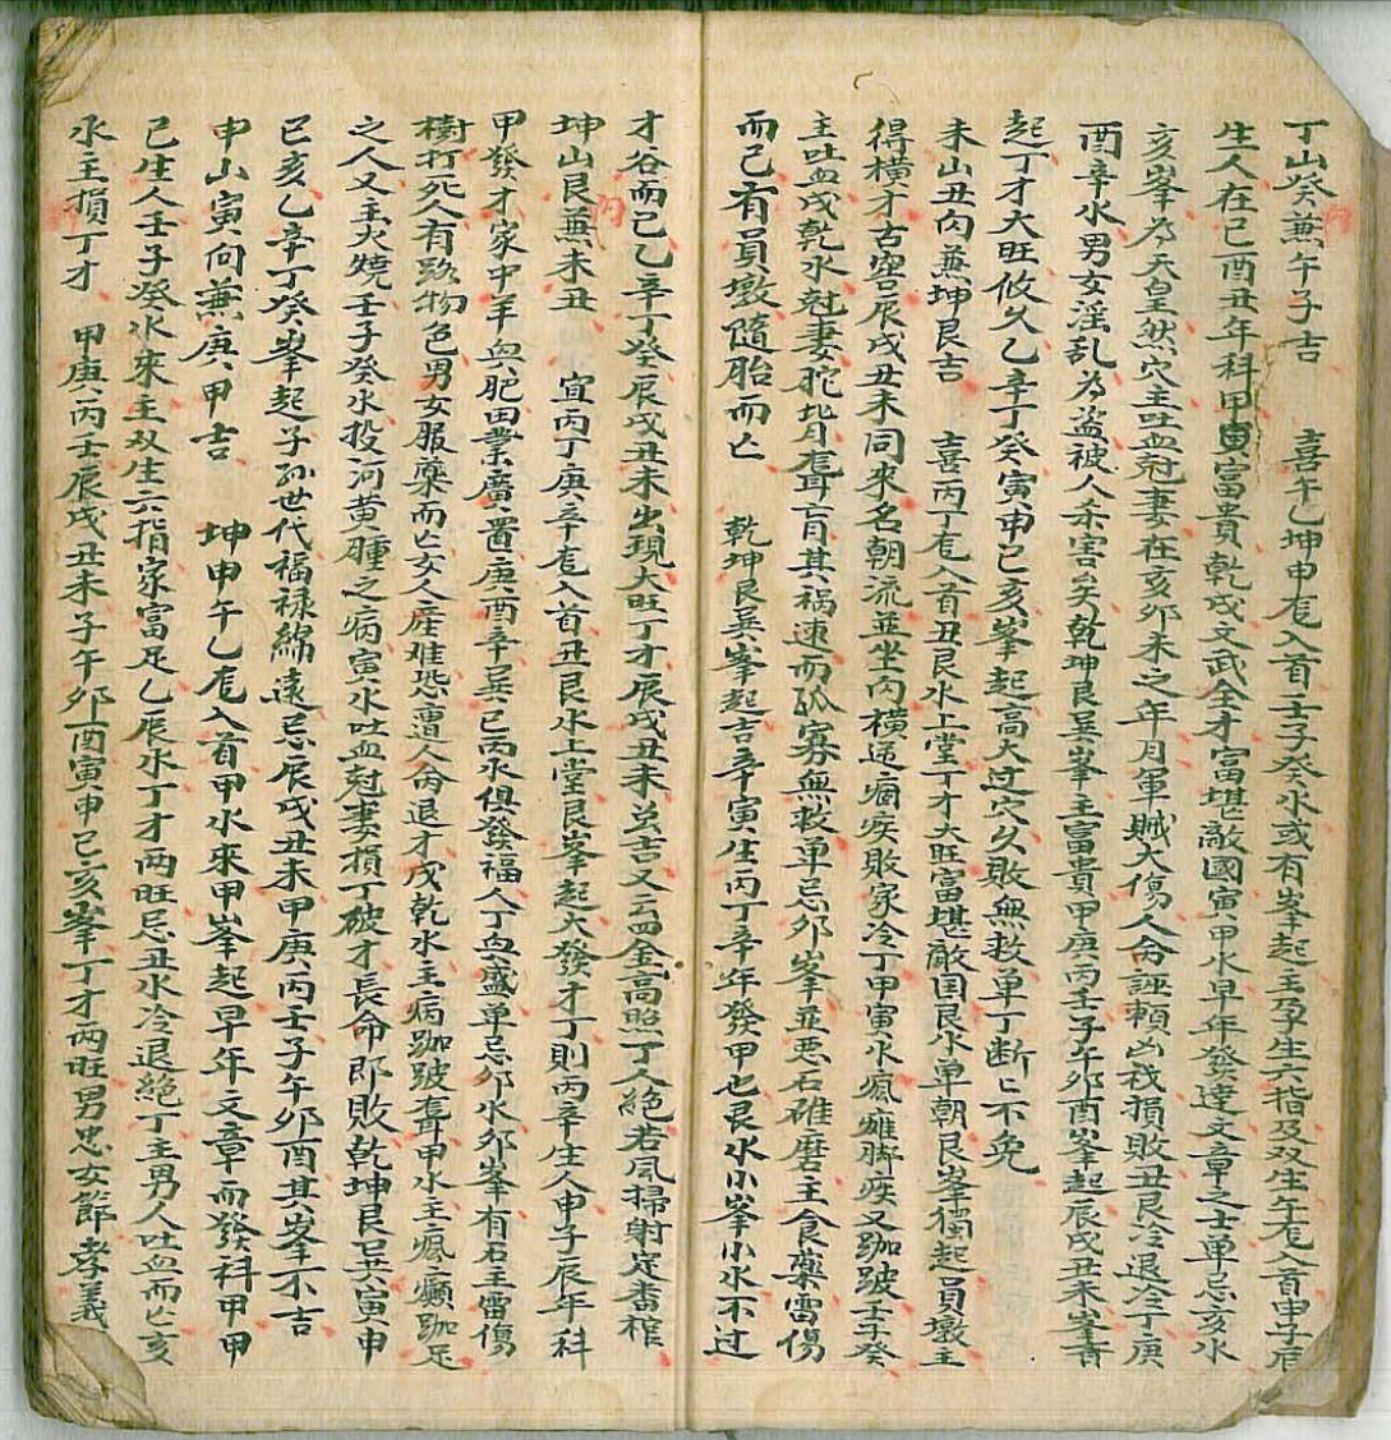 丁山癸兼午子吉　喜午乙坤申龍入首壬子癸水或有峯起主孕生六指及双生午龍入首申子辰
生人在己酉丑年科甲寅富貴乾戌文武全才富堪敵國寅甲水早年發達文章之士单忌亥水
亥峯為天皇然穴主吐血尅妻在亥卯未之年月軍賊大傷人命誣頼凶伐損敗丑艮冷退冷丁庚
酉辛水男女淫乱為盗被人杀害矣乾坤艮巽峯主富貴甲庚丙壬子午卯酉峯起辰戌丑未峯音
起丁才大旺攸久乙辛丁癸寅申已亥峯起高大过穴久敗無救单丁断匕不免
未山丑内兼坤艮吉　喜丙丁龍入首丑艮水上堂丁才大旺富堪敵国艮水单朝艮峯獨起員墩主
得横才古窖辰戌丑未同來名朝流並坐内横逆痼疾敗家冷丁甲寅水瘋癱脚疾又跏跛壬子癸
主吐血戌乾水尅妻駝背聾盲其禍速而孤寡無救单忌卯峯並恶石碓磨主食藥雷傷
而已有員墩隨胎而亡　乾坤艮巽峯起吉辛寅生丙丁辛年發甲也艮水小峯小水不过
才谷而已乙辛丁癸辰戌丑未出現大旺丁才辰戌丑未並吉又云四金高照丁人絶若風掃射定番棺
坤山艮兼未丑　宜丙丁庚辛龍入首丑艮水上堂艮峯起大發才丁則丙辛生人申子辰年科
甲發才家中羊與肥田業廣置庚酉辛巽已丙水俱發福人丁與盛单忌卯水卯峯有石主雷傷
樹打死人有路物色男女服藥而亡女人産难恐遭人命退才戌乾水主病跏跛聾申水主瘋癲跏足
之人又主火燒壬子癸水投河黄腫之病寅水吐血尅妻損丁破才長命即敗乾坤艮巽寅申
已亥乙辛丁癸峯起子孙世代福禄綿遠忌辰戌丑未甲庚丙壬子午卯酉其峯不吉
申山寅向兼庚甲吉　坤申午乙龍入首甲水來甲峯起早年文章而發科甲甲
己生人壬子癸水來主双生六指家富足乙辰水丁才両旺忌丑水冷退絶丁主男人吐血而亡亥
水主損丁才　甲庚丙壬辰戌丑未子午卯酉寅申已亥峯丁才両旺男忠女節孝義